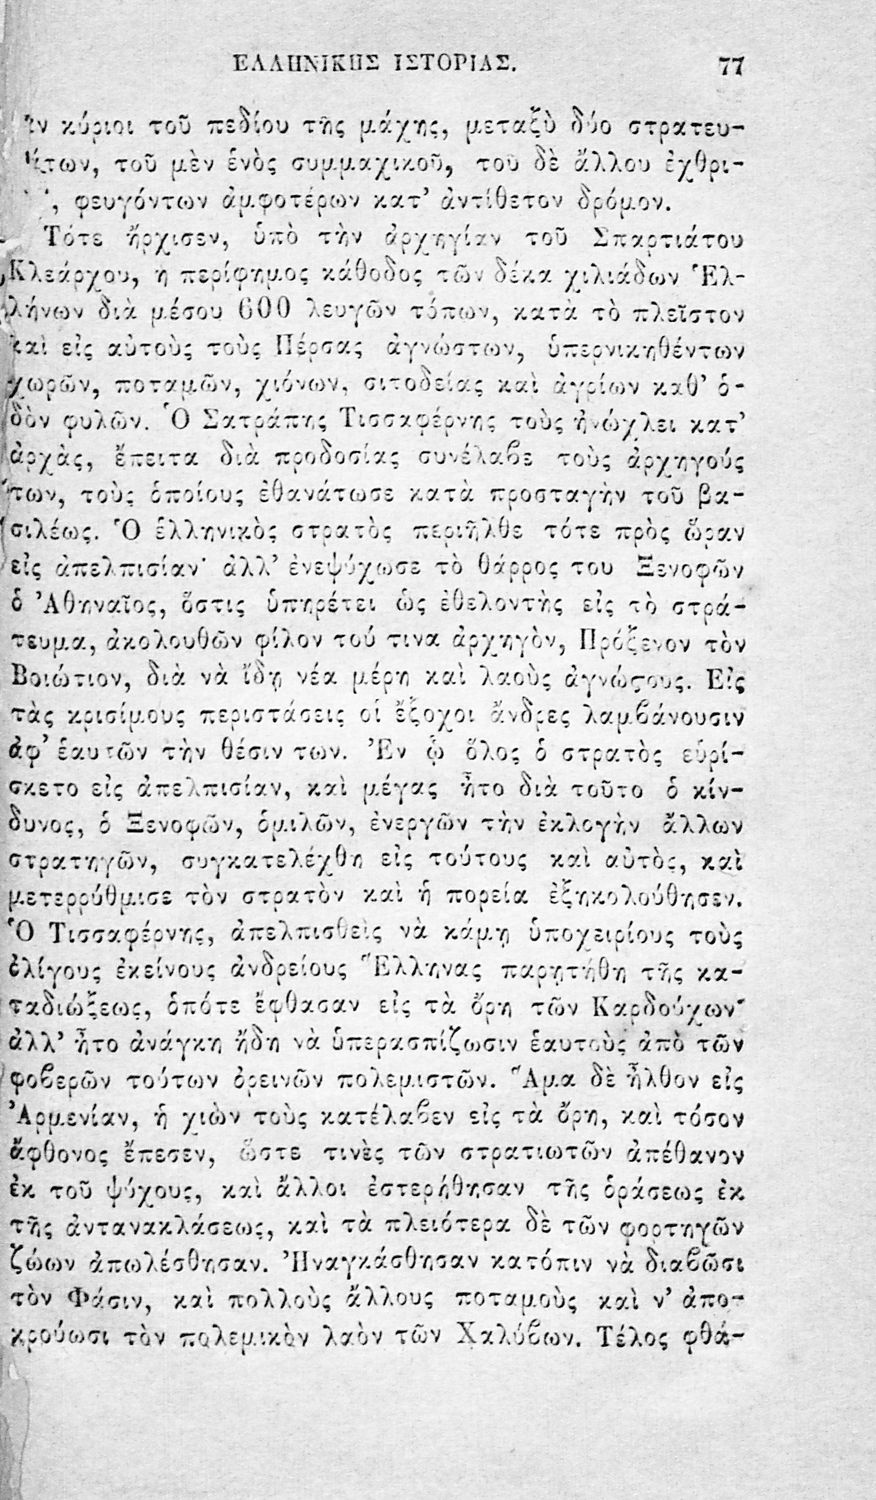 ΕΛΛΗΝΙΚΗΣ ΙΣΤΟΡΙΑΣ. 77
κύριοι τοῦ πεδίου τῆς μάχης, μεταξὺ δύο στρατευ-
των, τοῦ μὲν ἑνὸς συμμαχικοῦ, τοῦ δὲ ἄλλου ἐχθρι-
, φευγόντων ἀμφοτέρων κατ’ ἀντίθετον δρόμον.
Τότε ἤρχισεν, ὑπὸ τὴν ἀρχηγίαν τοῦ Σπαρτιάτου
Κλεάρχου, ἡ περίφημος κάθοδος τῶν δέκα χιλιάδων Ἑλ-
λήνων διὰ μέσου 600 λευγῶν τόπων, κατὰ τὸ πλεῖστον
καὶ εἰς αὐτοὺς τοὺς Πέρσας ἀγνώστων, ὑπερνικηθέντων
χωρῶν, ποταμῶν, χιόνων, σιτοδείας καὶ ἀγρίων καθ’ ὁ-
δὸν φυλῶν. Ὁ Σατράπης Τισσαφέρνης τοὺς ἠνώχλει κατ’
ἀρχὰς, ἔπειτα διὰ προδοσίας συνέλαβε τοὺς ἀρχηγούς
των, τοὺς ὁποίους ἐθανάτωσε κατὰ προσταγὴν τοῦ βα-
σιλέως. Ὁ ἑλληνικὸς στρατὸς περιῆλθε τότε πρὸς ὥραν
εἰς ἀπελπισίαν· ἀλλ’ ἐνεψύχωσε τὸ θάρρος του Ξενοφῶν
ὁ Ἀθηναῖος, ὅστις ὑπηρέτει ὡς ἐθελοντὴς εἰς τὸ στρά-
τευμα, ἀκολουθῶν φίλον τού τινα ἀρχηγὸν, Πρόξενον τὸν
Βοιώτιον, διὰ νὰ ἴδῃ νέα μέρη καὶ λαοὺς ἀγνώστους. Εἰς
τὰς κρισίμους περιστάσεις οἱ ἔξοχοι ἄνδρες λαμβάνουσιν
ἀφ’ ἑαυτῶν τὴν θέσιν των. Ἐν ᾧ ὅλος ὁ στρατὸς εὑρί-
σκετο εἰς ἀπελπισίαν, καὶ μέγας ἦτο διὰ τοῦτο ὁ κίν-
δυνος, ὁ Ξενοφῶν, ὁμιλῶν, ἐνεργῶν τὴν ἐκλογὴν ἄλλων
στρατηγῶν, συγκατελέχθη εἰς τούτους καὶ αὐτὸς, καὶ
μετερρύθμισε τὸν στρατὸν καὶ ἡ πορεία ἐξηκολούθησεν.
Ὁ Τισσαφέρνης, ἀπελπισθεὶς νὰ κάμῃ ὑποχειρίους τοὺς
ὀλίγους ἐκείνους ἀνδρείους Ἕλληνας παρῃτήθη τῆς κα-
ταδιώξεως, ὁπότε ἔφθασαν εἰς τὰ ὄρη τῶν Καρδούχων·
ἀλλ’ ἦτο ἀνάγκη ἤδη νὰ ὑπερασπίζωσιν ἑαυτοὺς ἀπὸ τῶν
φοβερῶν τούτων ὀρεινῶν πολεμιστῶν. Ἅμα δὲ ἦλθον εἰς
Ἀρμενίαν, ἡ χιὼν τοὺς κατέλαβεν εἰς τὰ ὄρη, καὶ τόσον
ἄφθονος ἔπεσεν, ὥστε τινὲς τῶν στρατιωτῶν ἀπέθανον
ἐκ τοῦ ψύχους, καὶ ἄλλοι ἐστερήθησαν τῆς ὁράσεως ἐκ
τῆς ἀντανακλάσεως, καὶ τὰ πλειότερα δὲ τῶν φορτηγῶν
ζώων ἀπωλέσθησαν. Ἠναγκάσθησαν κατόπιν νὰ διαβῶσι
τὸν Φάσιν, καὶ πολλοὺς ἄλλους ποταμοὺς καὶ ν’ ἀπο-
κρούωσι τὸν πολεμικὸν λαὸν τῶν Χαλύβων. Τέλος φθά-